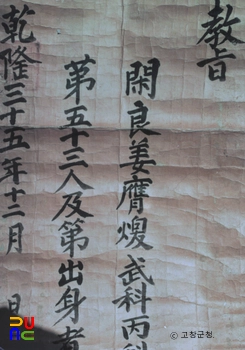 教旨
閑良姜膺煥武科丙科
第五十三人及第出身者
乾隆三十五年十二月 日
© 고창군청.